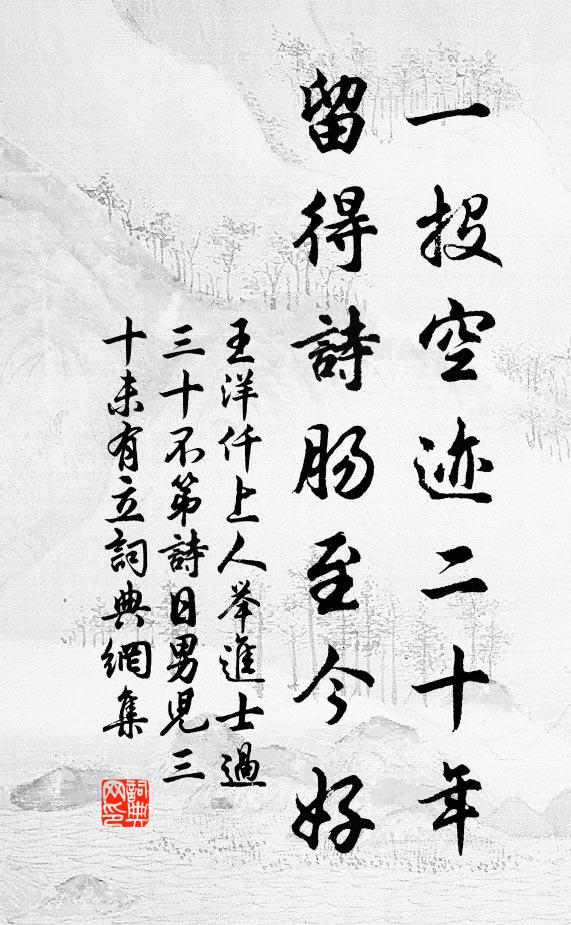 一投空迹二十年
留得詩肠至今好
王洋仟上人举進士過
三十不第詩日男児三
十未有立詞典網集
詞典
网印